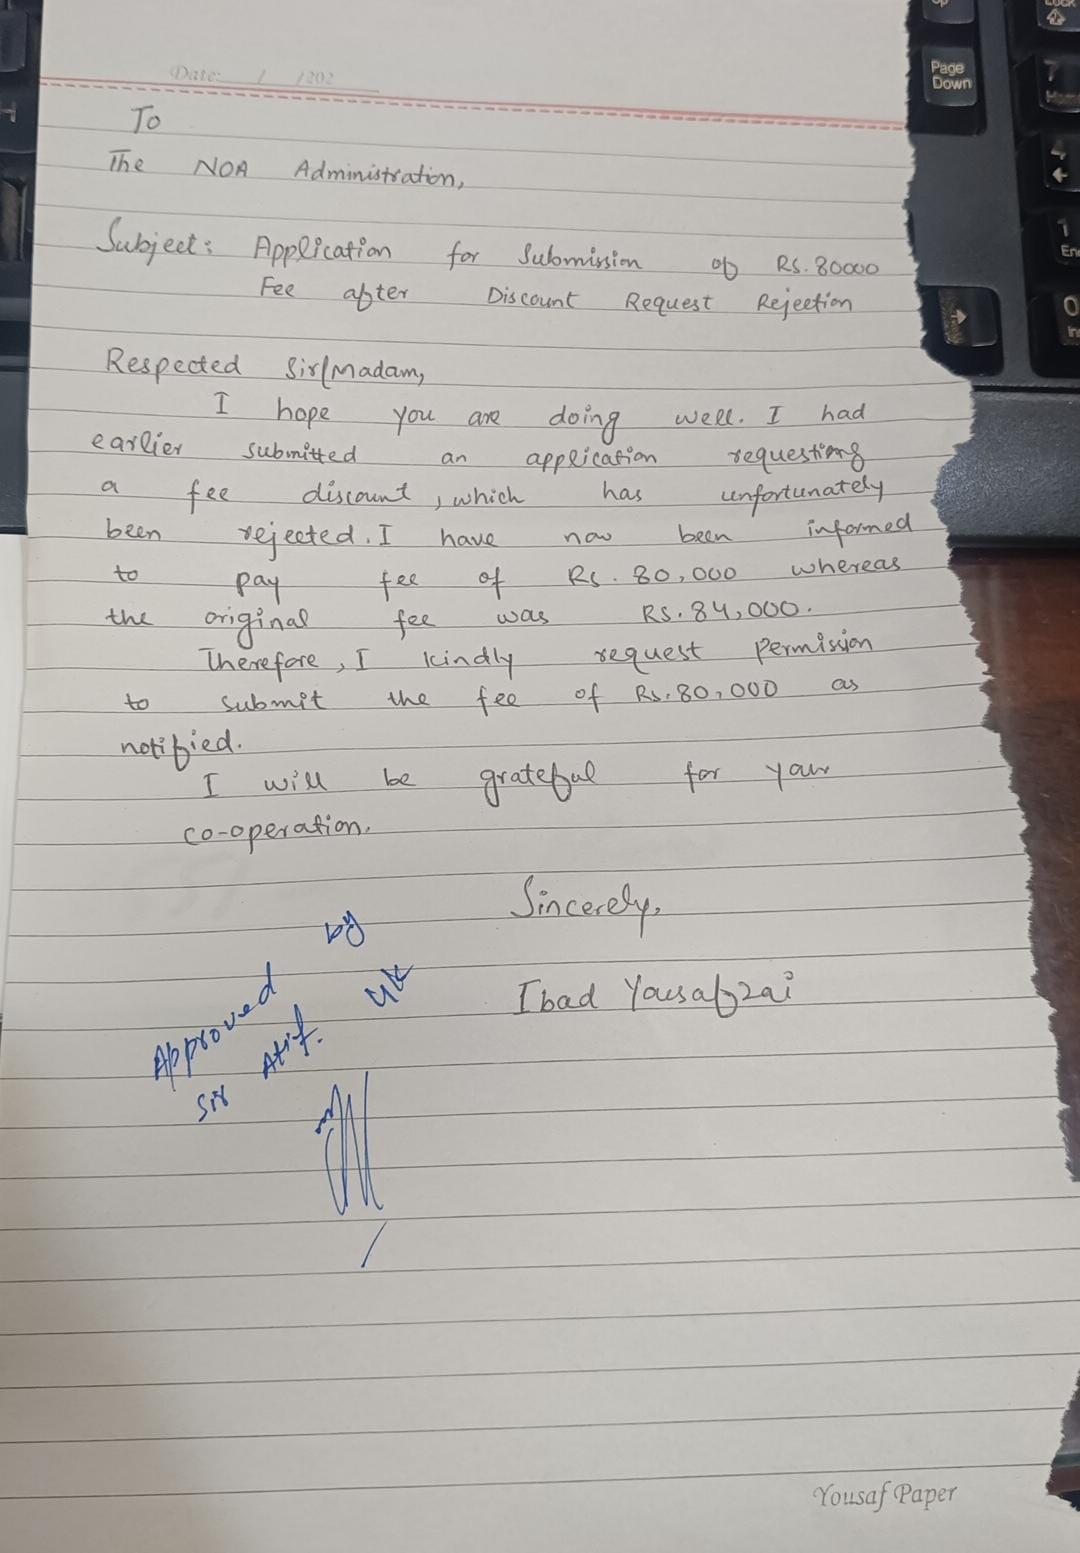 Date: / /202
To
The NOA Administration,
Subject: Application for Submission of RS. 80000
Fee after Discount Request Rejection
Respected Sir/Madam,
I hope you are doing well. I had
earlier submitted an application requesting
a fee discount, which has unfortunately
been rejected. I have now been informed
to pay fee of Rs. 80,000 whereas
the original fee was RS. 84,000.
Therefore, I kindly request permission
to submit the fee of Rs. 80,000 as
notified.
I will be grateful for your
co-operation.
Sincerely,
Ibad Yousafzai
Approved by
Sir Atif.
Yousaf Paper
Page
Down